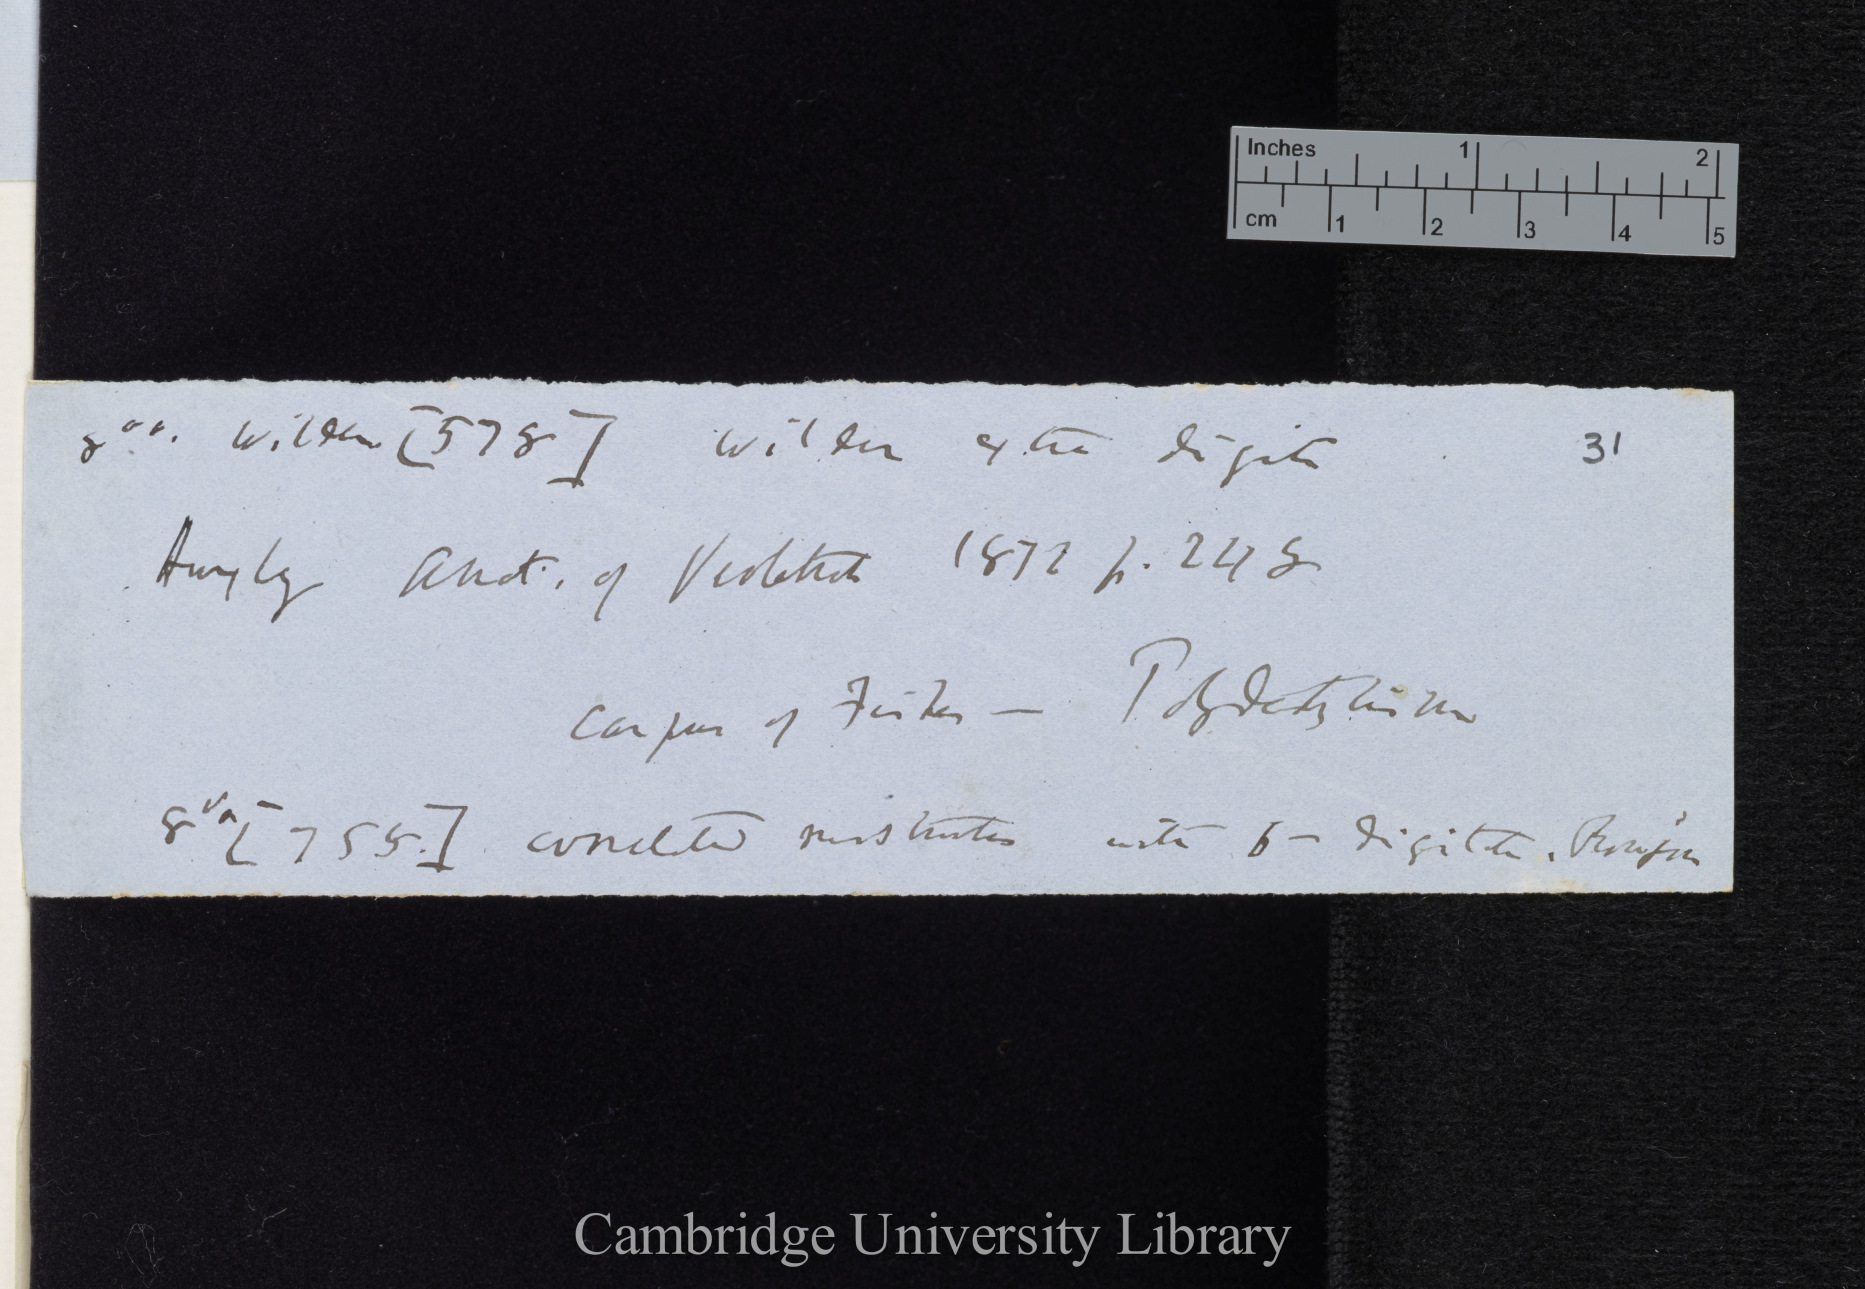 Inches 1 2
cm 1 2 3 4 5
8vo. Wilder [578] Wilder extra digits 31
Huxley Anat. of Vertebrata 1872 p. 248
Carpus of Fishes — Polydactylism
8vo [755.] correlated with 6 - digits.
Cambridge University Library